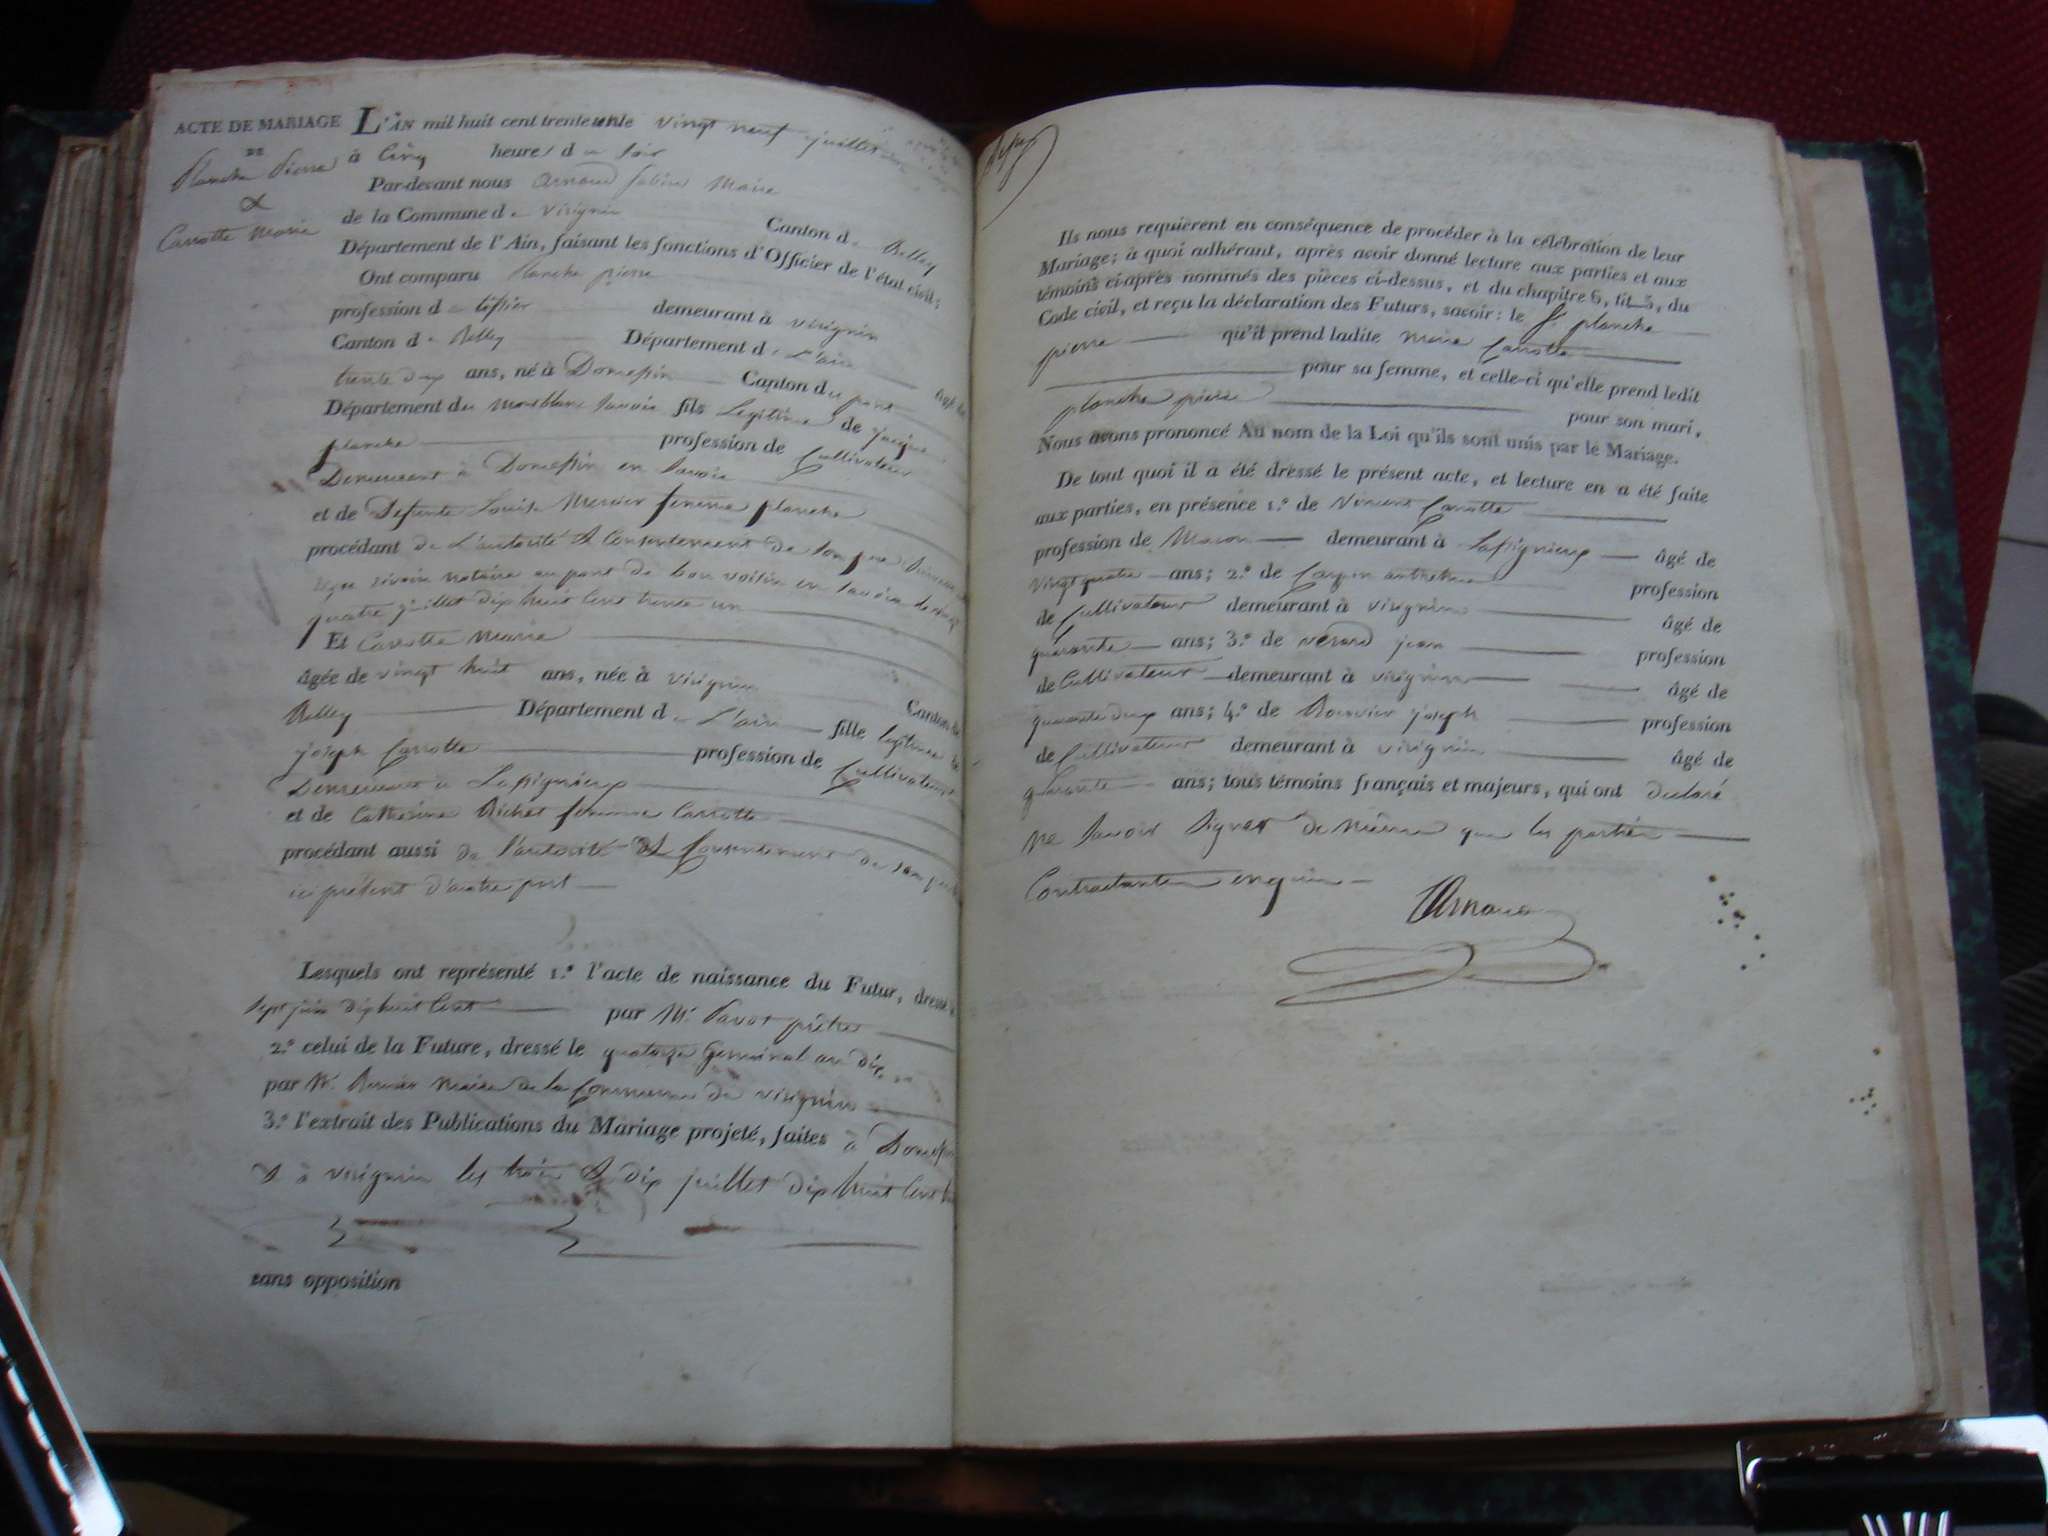 ACTE DE MARIAGE
DE
Planche Pierre
&
Carrotte Marie
L'AN mil huit cent trente un le vingt neuf juillet
à Cinq heures du soir
Par-devant nous Arnaud Maire
de la Commune de virignin Canton de Belley
Département de l'Ain, faisant les fonctions d'Officier de l'état civil;
Ont comparu Planche pierre
profession de demeurant à virignin
Canton de Belley Département de L'ain
trente deux ans, né à Domessin Canton du pont
Département du Montblanc Savoie fils Légitime de jacque
planche profession de Cultivateur
Demeurant à Domessin en Savoie
et de Defunte Louise Mercier femme planche
procédant de L'autorité & Consentement de son père
notaire au pont de bon voisin en Savoie le vingt
quatre juillet dix huit Cent trente un
Et Carrotte Marie
âgée de vingt huit ans, née à virignin Canton de
Belley Département de L'ain fille legitime de
joseph Carrotte profession de Cultivateur
Demeurant à
et de Catherine Richet femme Carrotte
procédant aussi de l'autorité & Consentement de son père
ici présent d'autre part
Lesquels ont représenté 1.º l'acte de naissance du Futur, dressé le
Sept juin dix huit Cent par Mr. prêtre
2.º celui de la Future, dressé le quatorze Germinal an dix
par Mr. Maire de la Commune de virignin
3.º l'extrait des Publications du Mariage projeté, faites à Domessin
& à virignin les trois & dix juillet dix huit Cent
sans opposition
Ils nous requièrent en conséquence de procéder à la célébration de leur
Mariage; à quoi adhérant, après avoir donné lecture aux parties et aux
témoins ci-après nommés des pièces ci-dessus, et du chapitre 6, tit. 5, du
Code civil, et reçu la déclaration des Futurs, savoir: le Sr. planche
pierre qu'il prend ladite Marie Carrotte
pour sa femme, et celle-ci qu'elle prend ledit
planche pierre pour son mari,
Nous avons prononcé Au nom de la Loi qu'ils sont unis par le Mariage.
De tout quoi il a été dressé le présent acte, et lecture en a été faite
aux parties, en présence 1.º de Vincent Carrotte
profession de Macon demeurant à âgé de
vingt quatre ans; 2.º de Carpin anthelme profession
de Cultivateur demeurant à virignin âgé de
quarante ans; 3.º de verard jean profession
de Cultivateur demeurant à virignin âgé de
quarante deux ans; 4.º de Bouvier joseph profession
de Cultivateur demeurant à virignin âgé de
quarante ans; tous témoins français et majeurs, qui ont declaré
ne Savoir Signer de même que les parties
Contractantes
Arnaud